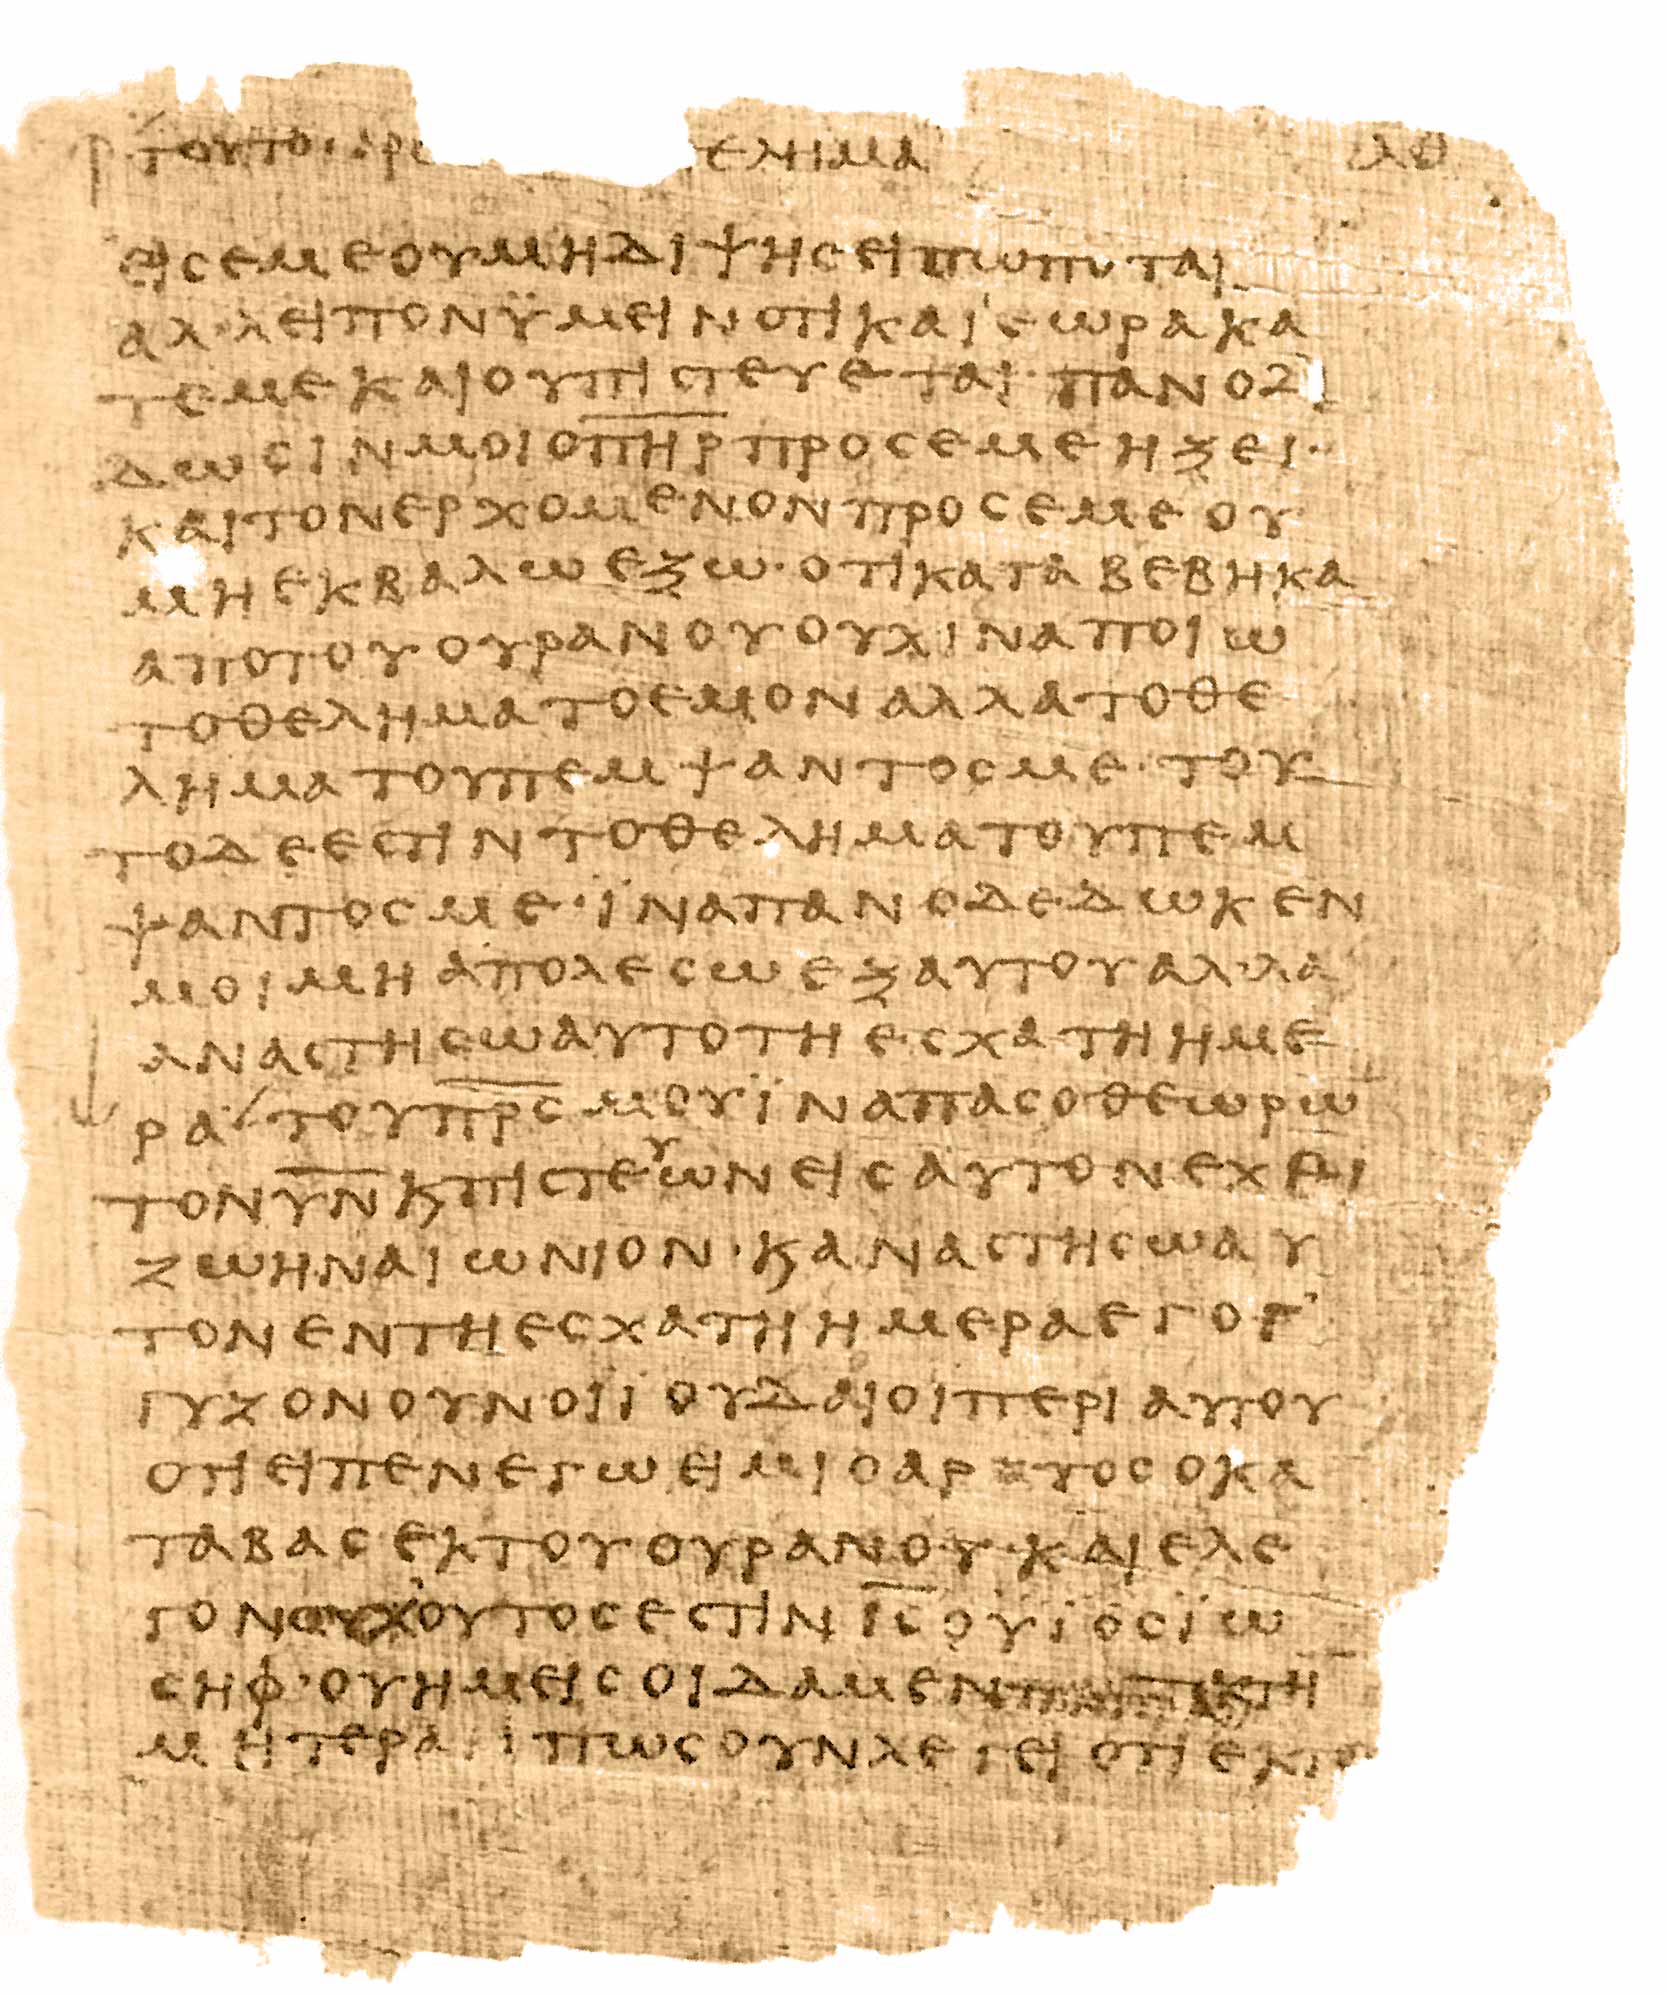 τουτο
λθ
εις εμε ου μη διψησει πωποται
αλλ ειπον ϋμειν οτι και εωρακα
τε με και ου πιστευεται · παν ο
δωσιν μοι ο π̅η̅ρ̅ προς εμε ηξει ·
και τον ερχομενον προς εμε ου
μη εκβαλω εξω · οτι καταβεβηκα
απο του ουρανου ουχ ινα ποιω
το θελημα το εμον αλλα το θε
λημα του πεμψαντος με · του
το δε εστιν το θελημα του πεμ
ψαντος με · ϊνα παν ο δεδωκεν
μοι μη απολεσω εξ αυτου αλλα
αναστησω αυτο τη εσχατη ημε
ρα / του π̅ρ̅ς̅ μου ϊνα πας ο θεωρω
τον υ̅ν̅ ϗ πιστευων εις αυτον εχει
ζωην αιωνιον · ϗ αναστησω αυ
τον εν τη εσχατη ημερα εγογ᾽
γυζον ουν οι ϊουδαιοι περι αυτου
οτι ειπεν εγω ειμι ο αρτος ο κα
ταβας εκ του ουρανου · και ελε
γον ουχ ουτος εστιν ι̅ς̅ ο ϋιος ϊω
σηφ · ου ημεις οιδαμεν τη
μητερα πως ουν λεγει οτι εκ